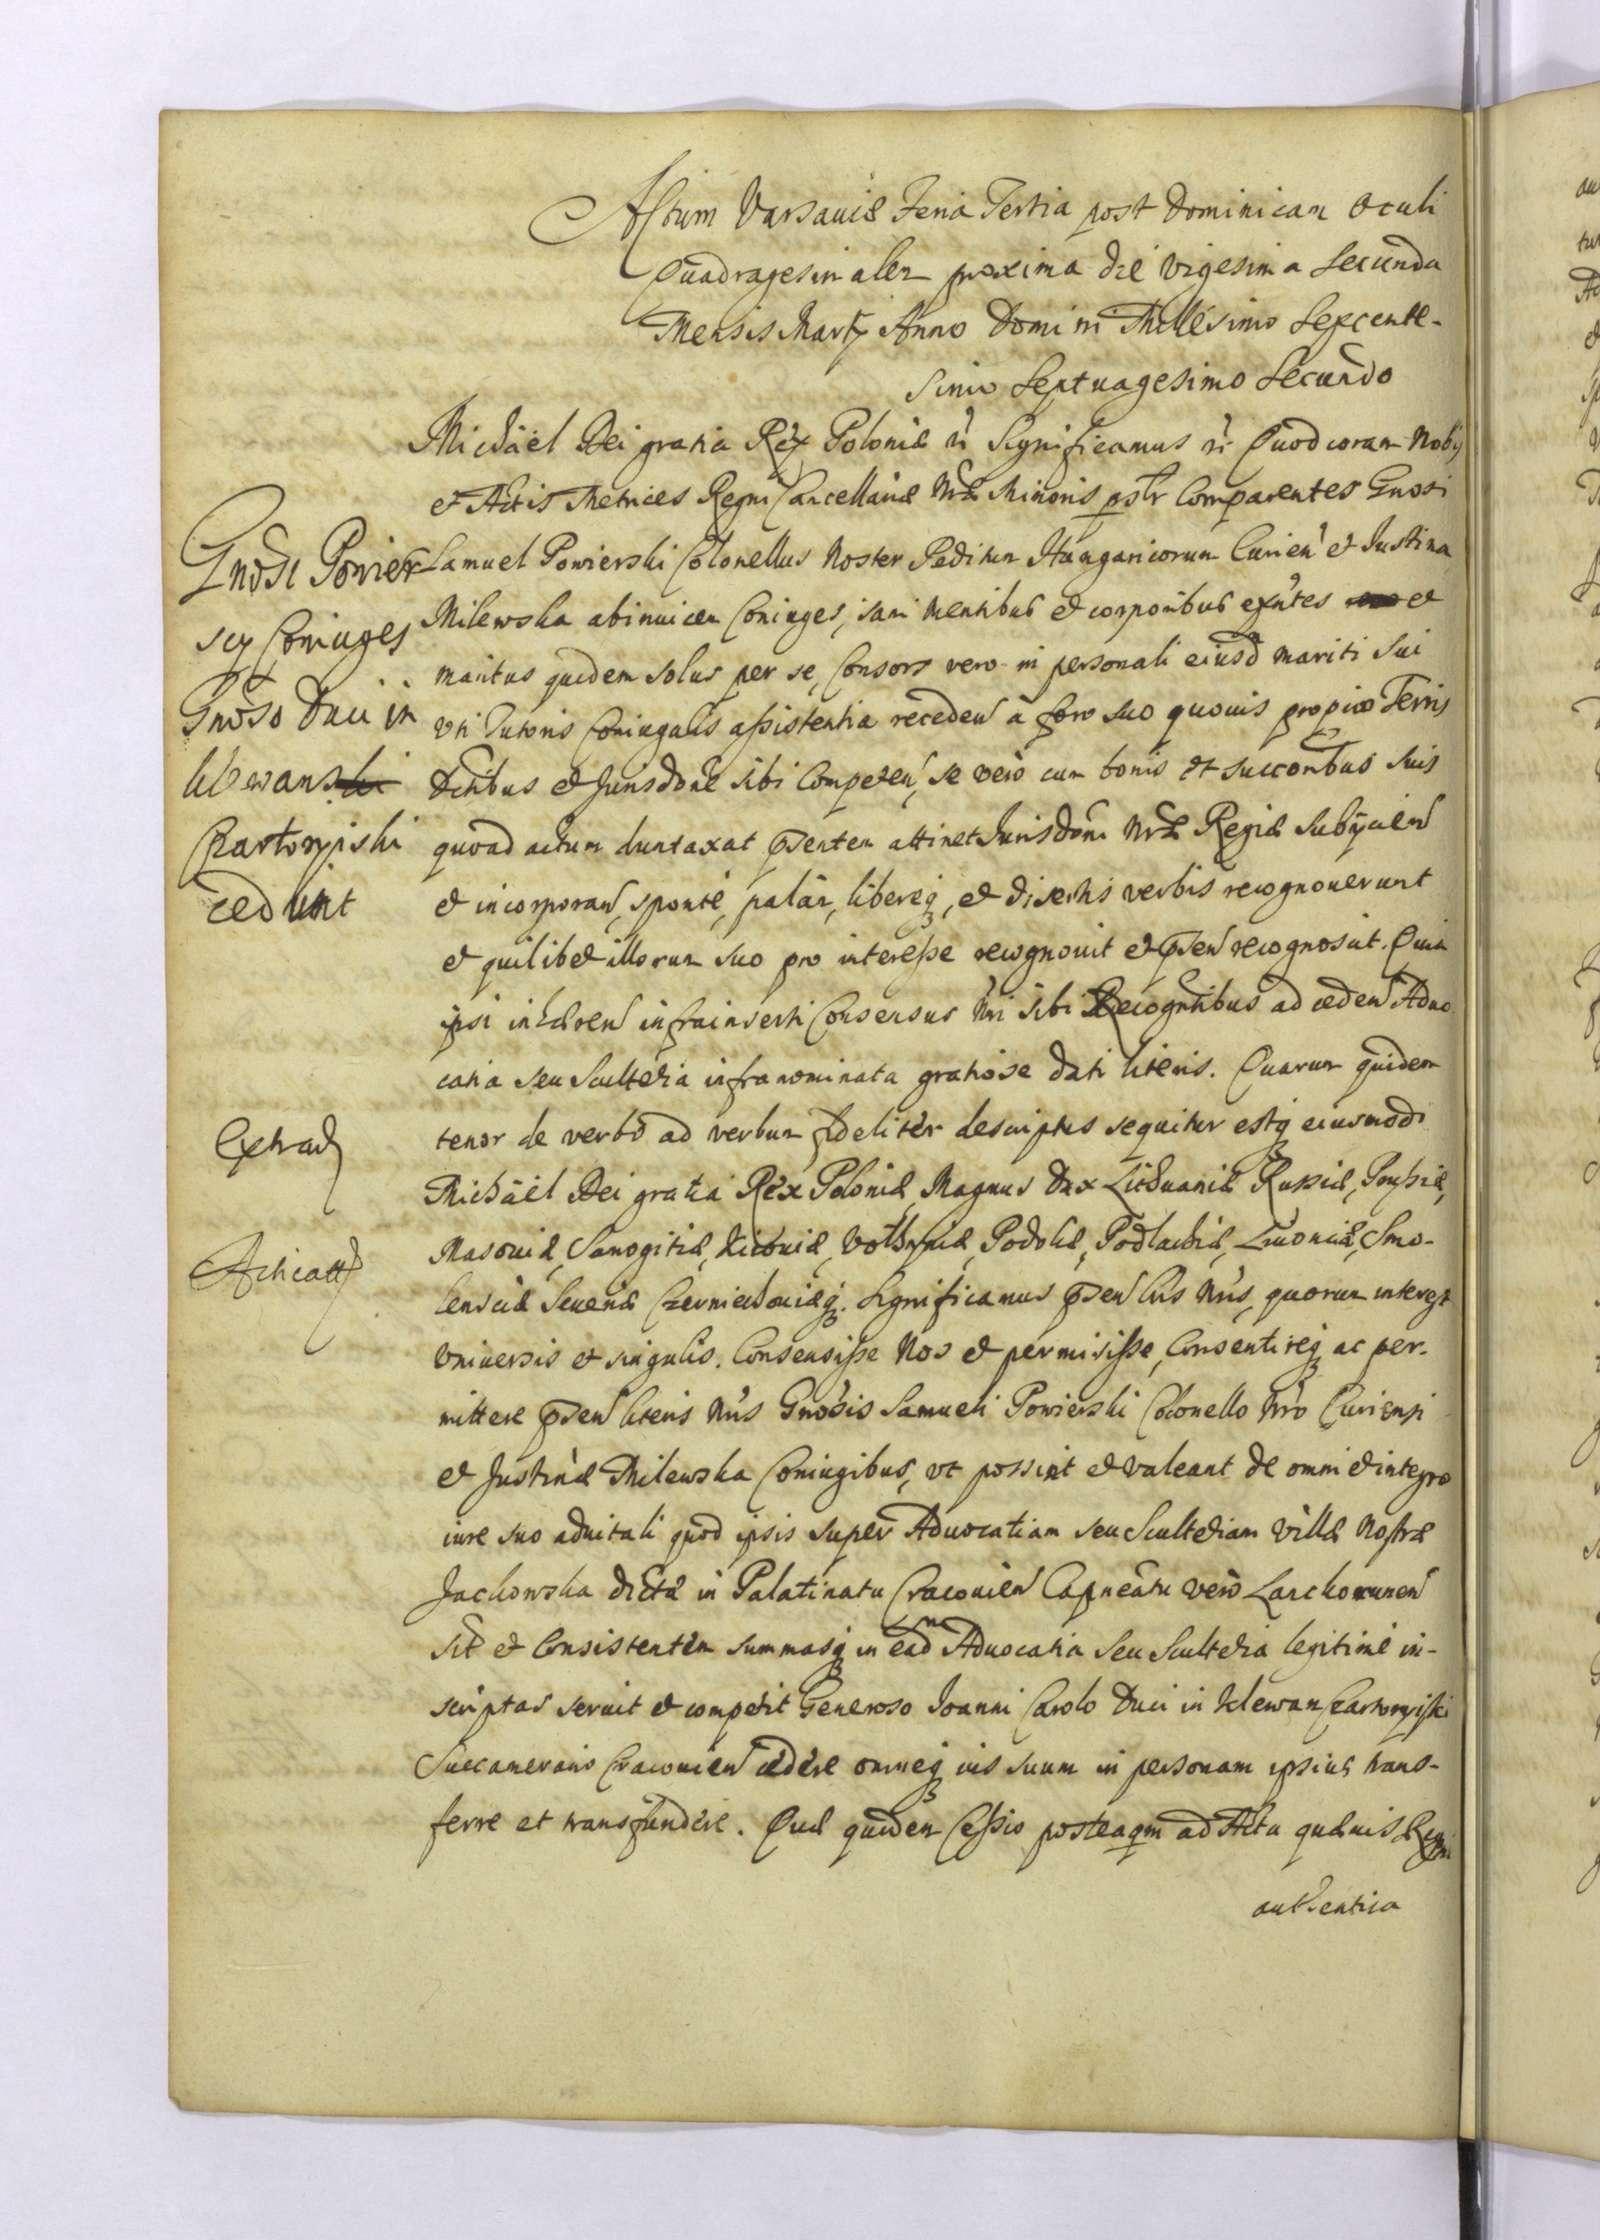 Actum Varsaviæ Feria Tertia post Dominicam Oculi
Quadragesimalem proxima die vigesima Secunda
Mensis Martij Anno Domini Millesimo Sexcente-
simo Septuagesimo Secundo
Michäel Dei gratia Rex Poloniæ Significamus Quod coram Nobis
et Actis Metrices Regni Cancellariæ Nræ Minoris Comparentes Gnosi
Samuel Powierski Colonellus Noster Peditum Hungaricorum Curien et Justina
Milewska abinuicem Coniuges, sani mentibus et corporibus exñtes et
maritus quidem solus per se, Consors vero in personali eiusd mariti sui
vti Tutoris Coniugalis assistentia receden à foro suo quouis proprio Terris
Dctibus et Jurisdone sibi Competen, se verò cum bonis et succoribus suis
quoad actum duntaxat pñsentem attinet Jurisdoni Nræ Regiæ Subijcien
et incorporan, sponte, palàm, libereq, et disertis verbis recognouerunt
et quilibet illorum suo pro interesse recognouit et pñsen recognoscit. Quia
ipsi inhæren infrainserti Consensus Nri sibi Recogntibus ad ceden Aduo
catia seu Scultetia infranominata gratiose dati literis. Quarum quidem
tenor de verbo ad verbum fideliter descriptus sequitur estq eiusmodi
Michäel Dei gratia Rex Poloniæ, Magnus Dux Lithuaniæ Russiæ, Prussiæ,
Masouiæ, Samogitiæ, Kiiouiæ, Volhyniæ, Podoliæ, Podlachiæ, Liuoniæ, Smo-
lensciæ Seueriæ Czerniechouiæq. Significamus pñsen Lris Nris, quorum interest
vniuersis et singulis. Consensisse Nos et permisisse, Consentireq ac per-
mittere pñsen literis Nris Gnosis Samueli Powierski Colonello Nro Curiensi
et Justinæ Milewska Coniugibus, vt possint et valeant de omni et integro
iure suo aduitali quod ipsis super Aduocatiam seu Scultetiam villæ Nostræ
Jackowska dictæ in Palatinatu Cracouien Capneatu verò
Sit et Consistentem summasq in eadm Aduocatia seu Scultetia legitimè in-
scriptas seruit et competit Generoso Joanni Carolo Duci in Klewan Czartoryiski
Succamerario Cracouien cedere omneq ius suum in personam ipsius trans-
ferre et transfundere. Quæ quidem Cessio posteaqm ad Acta quæuis Regni
authentica
Gnosi Powier
scy Coniuges
Gnoso Duci in
klewan
Czartoryiski
cedunt
Extrad